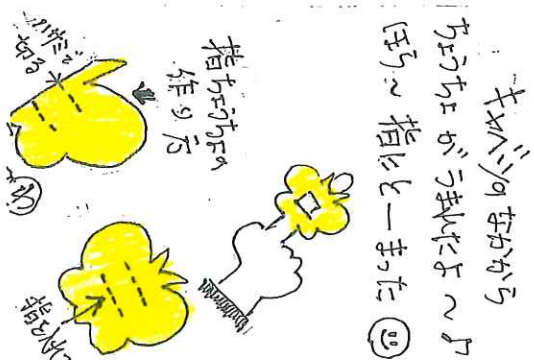 キャベツのなかから
ちょうちょがうまれたよ～♪
ほら～指にとーまった
指ちょうちょの
作り方
切る